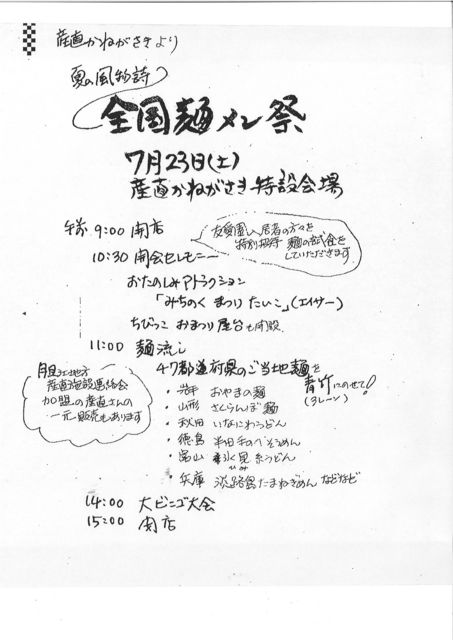 産直かねがさきより
夏の風物詩
全国麺メン祭
7月23日(土)
産直かねがさき特設会場
午前 9:00 開店
友愛園入居者の方々を
特別招待 麺の試食を
していただきます
10:30 開会セレモニー
おたのしみアトラクション
「みちのくまつりたいこ」(エイサー)
ちびっこおまつり屋台も開設
11:00 麺流し
47都道府県のご当地麺を
青竹にのせて!
(3レーン)
胆江地方
産直施設連絡会
加盟の産直さんの
一元販売もあります
・岩手 おやまの麺
・山形 さくらんぼ麺
・秋田 いなにわうどん
・徳島 半田手のべそうめん
・富山 氷見糸うどん
ひみ
・兵庫 淡路島たまねぎめん などなど
14:00 大ビンゴ大会
15:00 閉店